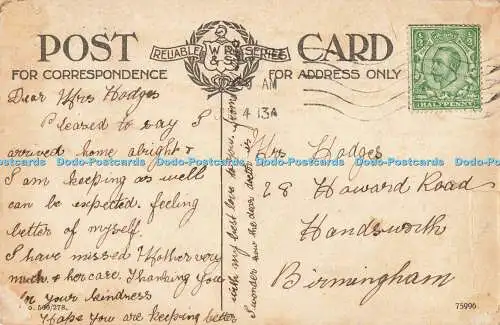 POST CARD
RELIABLE W R & S SERIES
FOR CORRESPONDENCE
FOR ADDRESS ONLY
HALFPENNY
AM
4 13
Dear Mrs Hodges
Pleased to say I
arrived home alright &
I am keeping as well
can be expected, feeling
better of myself.
I have missed Mother very
much & her care. Thanking you
in your kindness
Hope you are keeping better
with my best love to you from
I wonder how the dear doctor is
Mrs Hodges
28 Howard Road
Handsworth
Birmingham
75990
Dodo-Postcards Dodo-Postcards Dodo-Postcards Dodo-Postcards Dodo-Postcards Dodo-Postcards